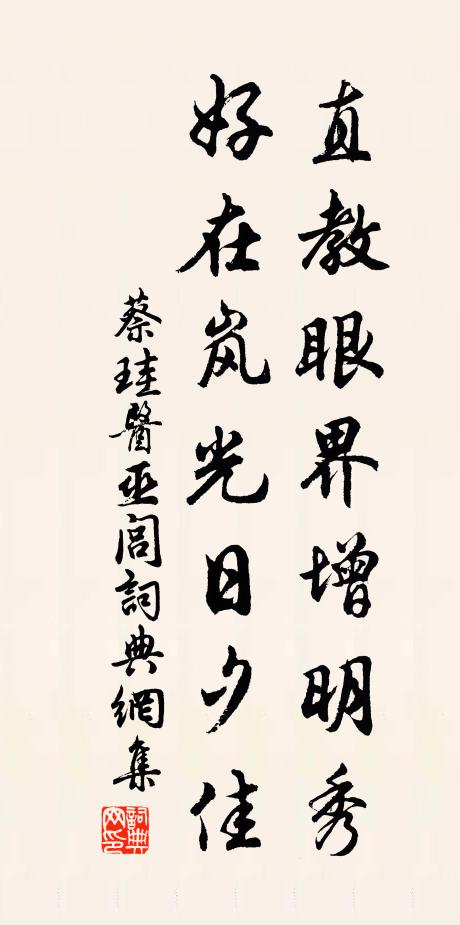 直教眼界增明秀
好在岚光日夕佳
蔡珪醫巫闾詞典網集
詞典网印